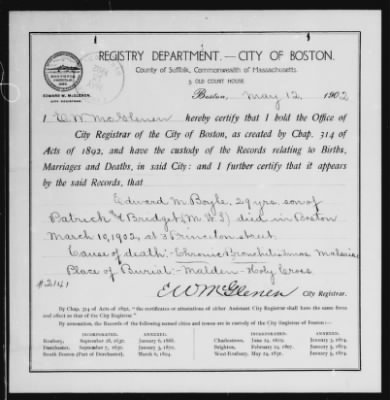 REGISTRY DEPARTMENT.—CITY OF BOSTON.
County of Suffolk, Commonwealth of Massachusetts.
OLD COURT HOUSE.
EDWARD W. McGLENEN,
CITY REGISTRAR
Boston, May 12, 1902
I, E. W. McGlenen hereby certify that I hold the Office of
City Registrar of the City of Boston, as created by Chap. 314 of
Acts of 1892, and have the custody of the Records relating to Births,
Marriages and Deaths, in said City: and I further certify that it appears
by the said Records, that
Edward M. Boyle, 29 yrs. son of
Patrick & Bridget, (M. W. I) died in Boston
March 10, 1902, at 3 Princeton street.
Cause of death:- Chronic Bronchitis Malaria
Place of Burial - Malden - Holy Cross
#2141
E W McGlenen City Registrar.
By Chap. 314 of Acts of 1892, "the certificates or attestations of either Assistant City Registrar shall have the same force
and effect as that of the City Registrar."
By annexation, the Records of the following named cities and towns are in custody of the City Registrar of Boston:
INCORPORATED. ANNEXED. INCORPORATED. ANNEXED.
Roxbury, September 28, 1630. January 6, 1868. Charlestown, June 24, 1629. January 5, 1874.
Dorchester, September 7, 1630. January 3, 1870. Brighton, February 24, 1807. January 5, 1874.
South Boston (Part of Dorchester), March 6, 1804. West Roxbury, May 24, 1851. January 5, 1874.